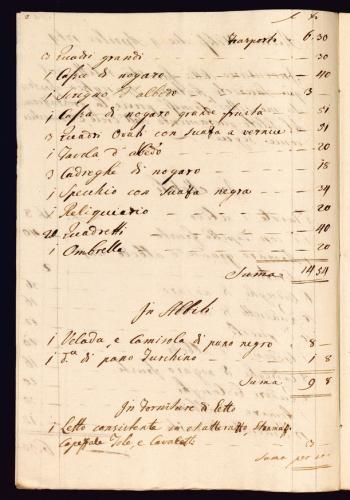 Trasporto 6 . 30
3 Quadri grandi — 30
1 Cassa di nogaro — 40
1 d'albedo — 3
1 Cassa di nogaro grande frusta — 51
3 Quadri Ovati con Suasa a vernice — 31
1 Tavola d'albedo — 20
3 Cadreghe di nogaro — 18
1 Specchio con Suasa negra — 34
1 Reliquiario — 20
Quadretti — 40
1 Ombrella — 20
Suma 14 54
In Abbiti
1 Velada, e Camisola di pano negro 8 —
1 d.ta di pano Turchino — 1 8
Suma 9 8
In Forniture di Letto
1 Letto consistente in Matterasso,
Tole, e Cavaletti — 3 —
Suma